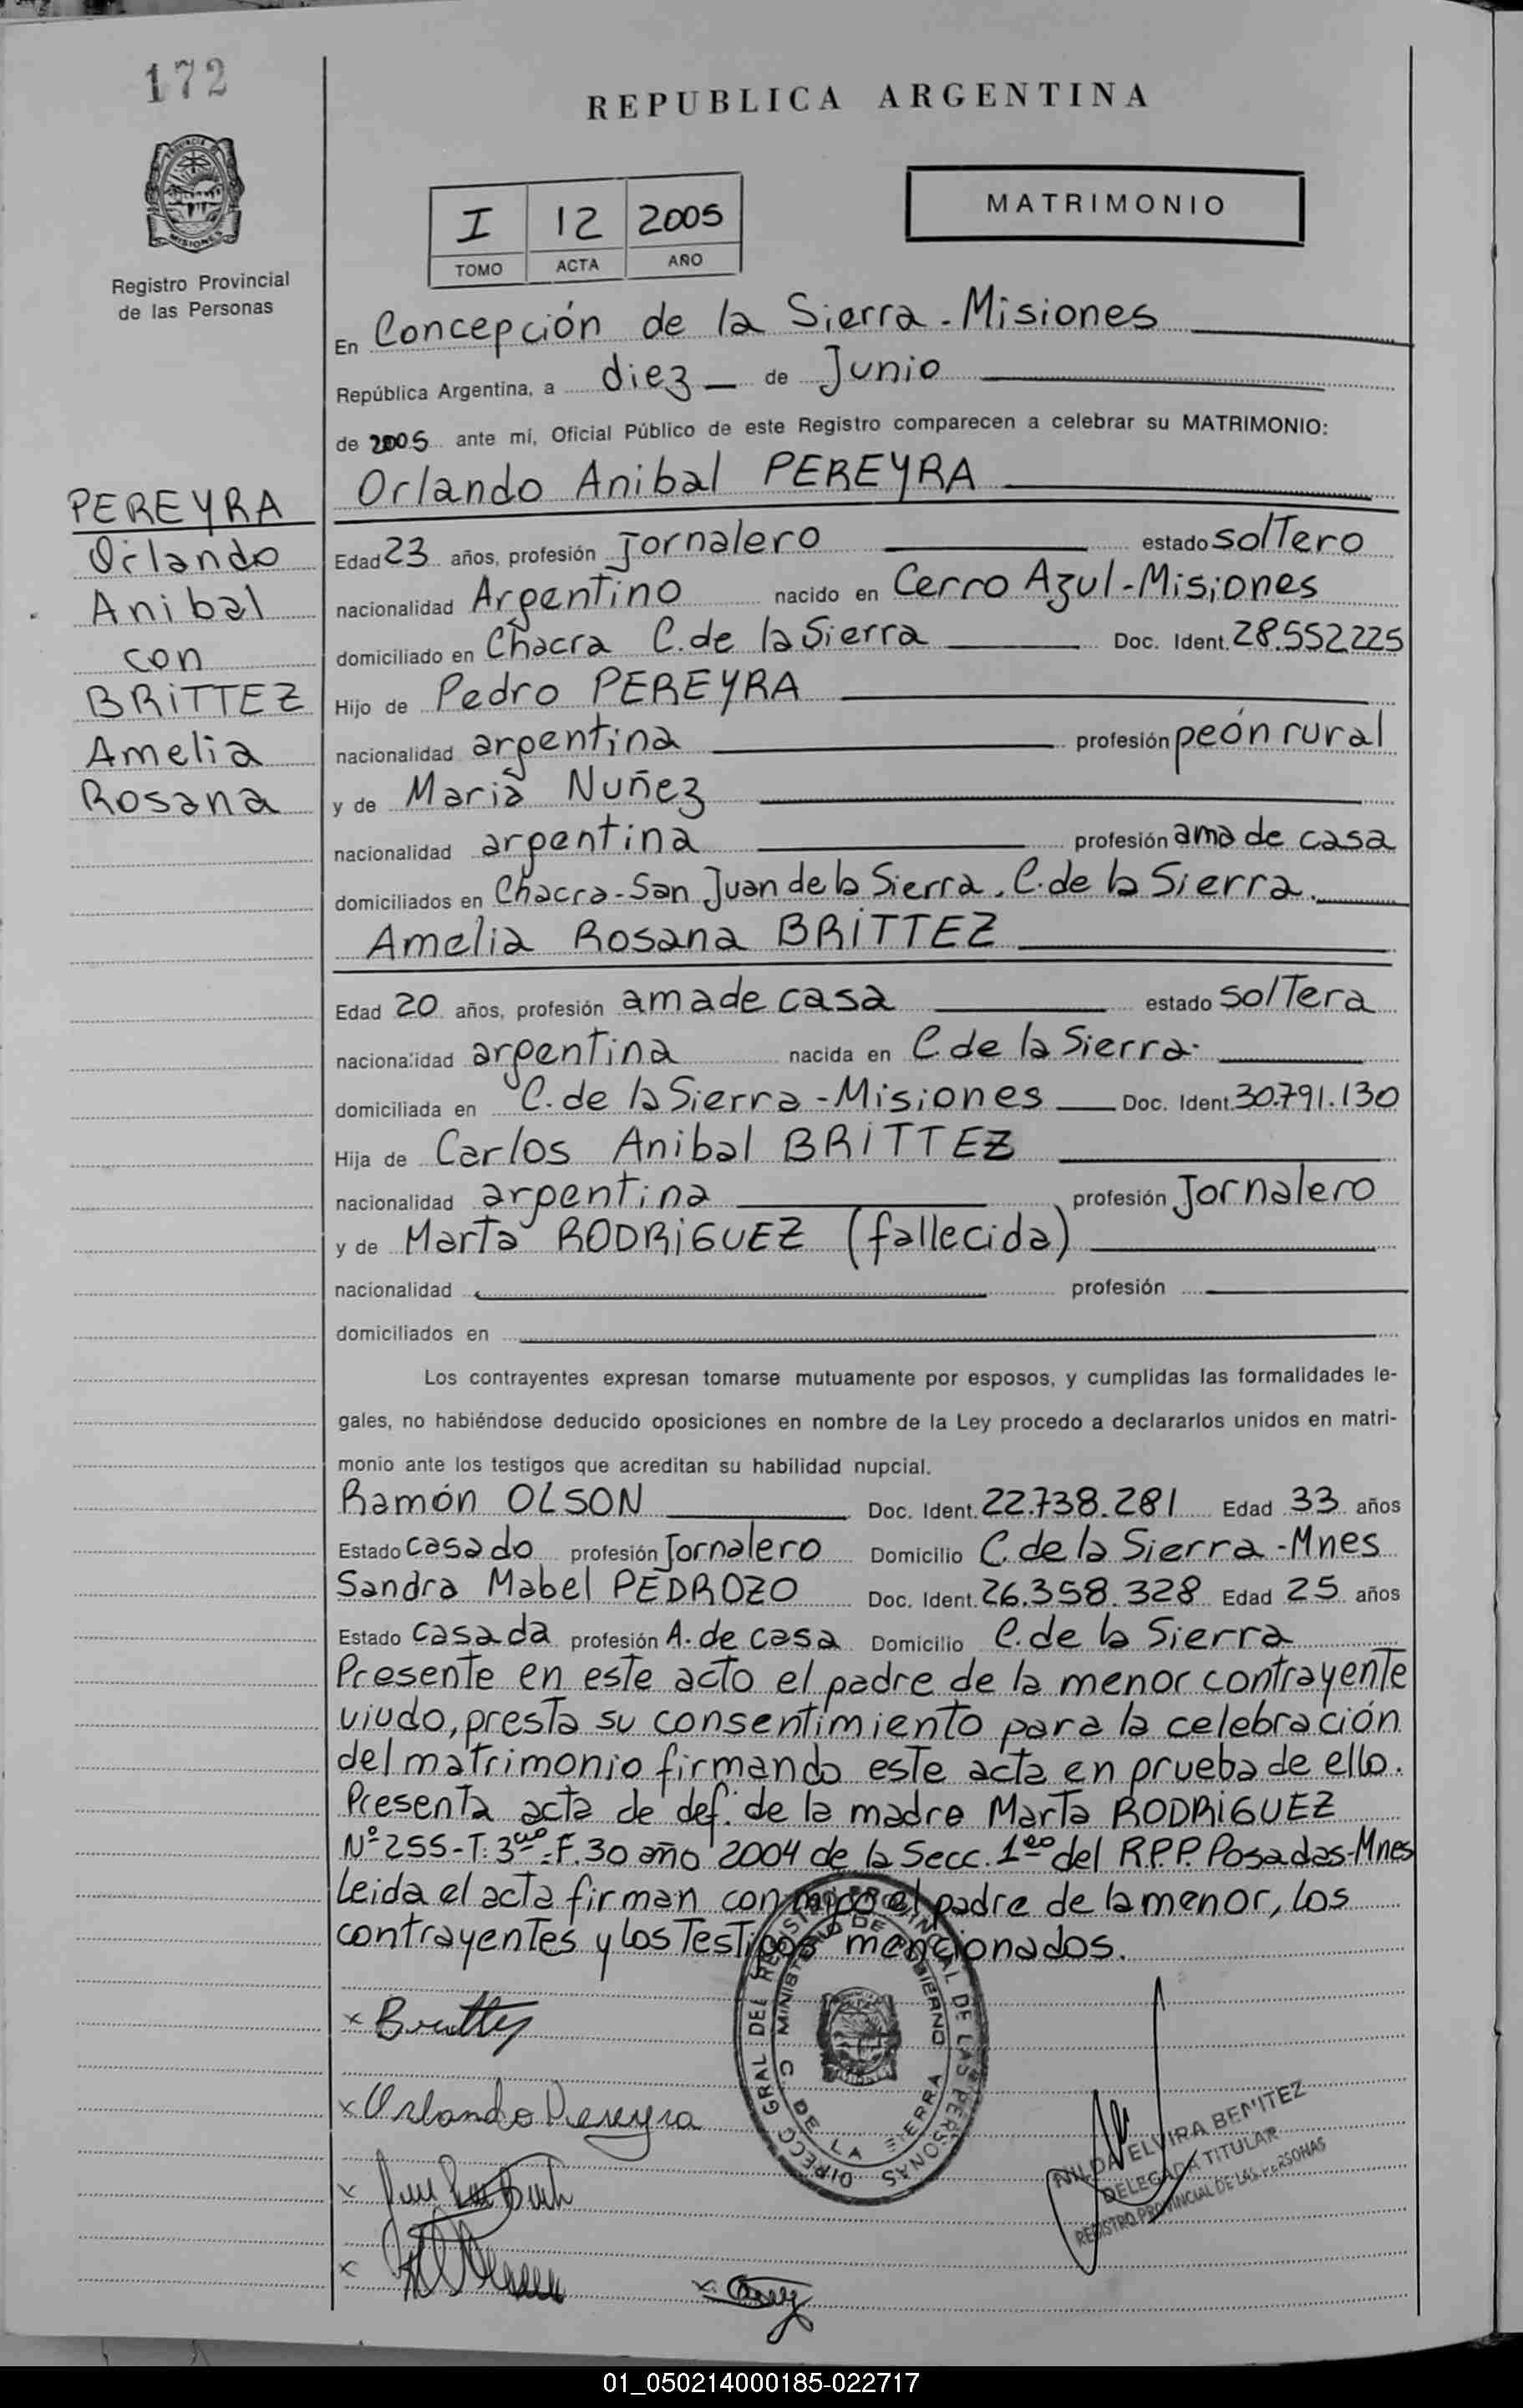 172
REPUBLICA ARGENTINA
PROVINCIA DE
MISIONES
Registro Provincial
de las Personas
MATRIMONIO
I 12 2005
TOMO ACTA AÑO
En Concepción de la Sierra - Misiones
República Argentina, a diez de Junio
de 2005 ante mí, Oficial Público de este Registro comparecen a celebrar su MATRIMONIO:
Orlando Anibal PEREYRA
PEREYRA
Orlando
Anibal
con
BRITTEZ
Amelia
Rosana
Edad 23 años, profesión Jornalero estado solTero
nacionalidad Argentino nacido en Cerro Azul-Misiones
domiciliado en Chacra C. de la Sierra Doc. Ident. 28.552.225
Hijo de Pedro PEREYRA
nacionalidad argentina profesión peón rural
y de Maria Nuñez
nacionalidad argentina profesión ama de casa
domiciliados en Chacra-San Juan de la Sierra. C. de la Sierra.
Amelia Rosana BRITTEZ
Edad 20 años, profesión ama de casa estado solTera
nacionalidad argentina nacida en C. de la Sierra.
domiciliada en C. de la Sierra-Misiones Doc. Ident. 30.791.130
Hija de Carlos Anibal BRITTEZ
nacionalidad argentina profesión Jornalero
y de Marta RODRIGUEZ (fallecida)
nacionalidad profesión
domiciliados en
Los contrayentes expresan tomarse mutuamente por esposos, y cumplidas las formalidades le-
gales, no habiéndose deducido oposiciones en nombre de la Ley procedo a declararlos unidos en matri-
monio ante los testigos que acreditan su habilidad nupcial.
Ramón OLSON Doc. Ident. 22.738.281 Edad 33 años
Estado casado profesión Jornalero Domicilio C. de la Sierra-Mnes
Sandra Mabel PEDROZO Doc. Ident. 26.358.328 Edad 25 años
Estado casada profesión A. de casa Domicilio C. de la Sierra
Presente en este acto el padre de la menor contrayente
viudo, presta su consentimiento para la celebración
del matrimonio firmando este acta en prueba de ello.
Presenta acta de def. de la madre Marta RODRIGUEZ
Nº255-T. 3ero-F. 30 año 2004 de la Secc. 1era del R.P.P. Posadas-Mnes
Leida el acta firman conmigo el padre de la menor, los
contrayentes y los Testigos mencionados.
DIRECC GRAL DEL REGISTRO PROVINCIAL DE LAS PERSONAS
MINISTERIO DE GOBIERNO
C. DE LA SIERRA
x Brittez
x Orlando Pereyra
x
x
x
NILDA ELVIRA BENITEZ
DELEGADA TITULAR
REGISTRO PROVINCIAL DE LAS PERSONAS
01_050214000185-022717